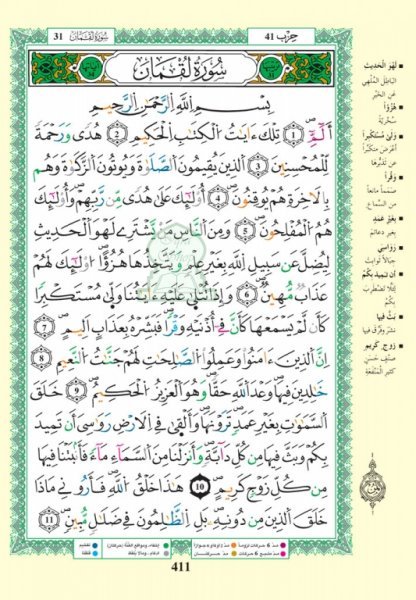 سُورَةُ لُقْمَان 31
حِزْب 41
سُورَةُ لُقْمَان
بِسْمِ اللَّهِ الرَّحْمَٰنِ الرَّحِيمِ
الٓمٓ 1 تِلْكَ ءَايَٰتُ الْكِتَٰبِ الْحَكِيمِ 2 هُدًى وَرَحْمَةً
لِّلْمُحْسِنِينَ 3 الَّذِينَ يُقِيمُونَ الصَّلَوٰةَ وَيُؤْتُونَ الزَّكَوٰةَ وَهُم
بِالْأَخِرَةِ هُمْ يُوقِنُونَ 4 أُوْلَٰٓئِكَ عَلَىٰ هُدًى مِّن رَّبِّهِمْ وَأُوْلَٰٓئِكَ
هُمُ الْمُفْلِحُونَ 5 وَمِنَ النَّاسِ مَن يَشْتَرِي لَهْوَ الْحَدِيثِ
لِيُضِلَّ عَن سَبِيلِ اللَّهِ بِغَيْرِ عِلْمٍ وَيَتَّخِذَهَا هُزُوًا أُوْلَٰٓئِكَ لَهُمْ
عَذَابٌ مُّهِينٌ 6 وَإِذَا تُتْلَىٰ عَلَيْهِ ءَايَٰتُنَا وَلَّىٰ مُسْتَكْبِرًا
كَأَن لَّمْ يَسْمَعْهَا كَأَنَّ فِي أُذُنَيْهِ وَقْرًا فَبَشِّرْهُ بِعَذَابٍ أَلِيمٍ 7
إِنَّ الَّذِينَ ءَامَنُوا وَعَمِلُوا الصَّٰلِحَٰتِ لَهُمْ جَنَّٰتُ النَّعِيمِ 8
خَٰلِدِينَ فِيهَا وَعْدَ اللَّهِ حَقًّا وَهُوَ الْعَزِيزُ الْحَكِيمُ 9 خَلَقَ
السَّمَٰوَٰتِ بِغَيْرِ عَمَدٍ تَرَوْنَهَا وَأَلْقَىٰ فِي الْأَرْضِ رَوَٰسِيَ أَن تَمِيدَ
بِكُمْ وَبَثَّ فِيهَا مِن كُلِّ دَآبَّةٍ وَأَنزَلْنَا مِنَ السَّمَآءِ مَآءً فَأَنبَتْنَا فِيهَا
مِن كُلِّ زَوْجٍ كَرِيمٍ 10 هَٰذَا خَلْقُ اللَّهِ فَأَرُونِي مَاذَا
خَلَقَ الَّذِينَ مِن دُونِهِ بَلِ الظَّٰلِمُونَ فِي ضَلَٰلٍ مُّبِينٍ 11
لَهْوَ الْحَدِيثِ
الباطل المُلهي
عن الخير
هُزُوًا
سُخْرِيَّة
وَلَّىٰ مُسْتَكْبِرًا
أعرض متكبّرا
عن تدبّرها
وَقْرًا
صَمَمًا مانعًا
من السماع
بِغَيْرِ عَمَدٍ
بغير دعائم
رَوَاسِيَ
جبالًا ثوابت
أَن تَمِيدَ بِكُمْ
لئلّا تضطرب
بكم
بَثَّ فِيهَا
نشر وفرّق فيها
زَوْجٍ كَرِيمٍ
صنف حسن
كثير المنفعة
411